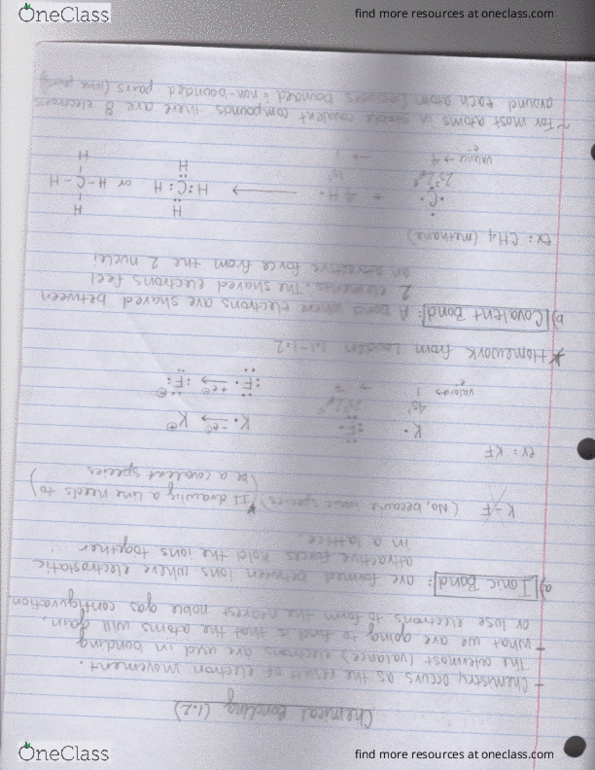 OneClass
find more resources at oneclass.com
Chemical Bonding (1.2)
- Chemistry occurs as the result of electron movement.
The outermost (valance) electrons are used in bonding
- What we are going to find is that the atoms will gain
or lose electrons to form the nearest noble gas configuration
a) Ionic Bond: are formed between ions where electrostatic
attractive forces hold the ions together
in a lattice.
K-F (No, because ionic species) * If drawing a line needs to
be a covalent species
ex: KF
K· :F:
4s¹
valance e⁻ → 1 → 7
K· -e⁻ → K⊕
:F· +e⁻ → :F:⊖
* Homework from Loudon 1.1-1.2
b) Covalent Bond: A bond where electrons are shared between
2 elements. The shared electrons feel
an attractive force from the 2 nuclei
ex: CH4 (methane)
·C· + 4 H· → H:C:H or H-C-H
H H
H H
valance e⁻ → 4 → 1
~ For most atoms in simple covalent compounds, there are 8 electrons
around each atom between bounded & non-bounded pairs (lone pairs)
OneClass
find more resources at oneclass.com